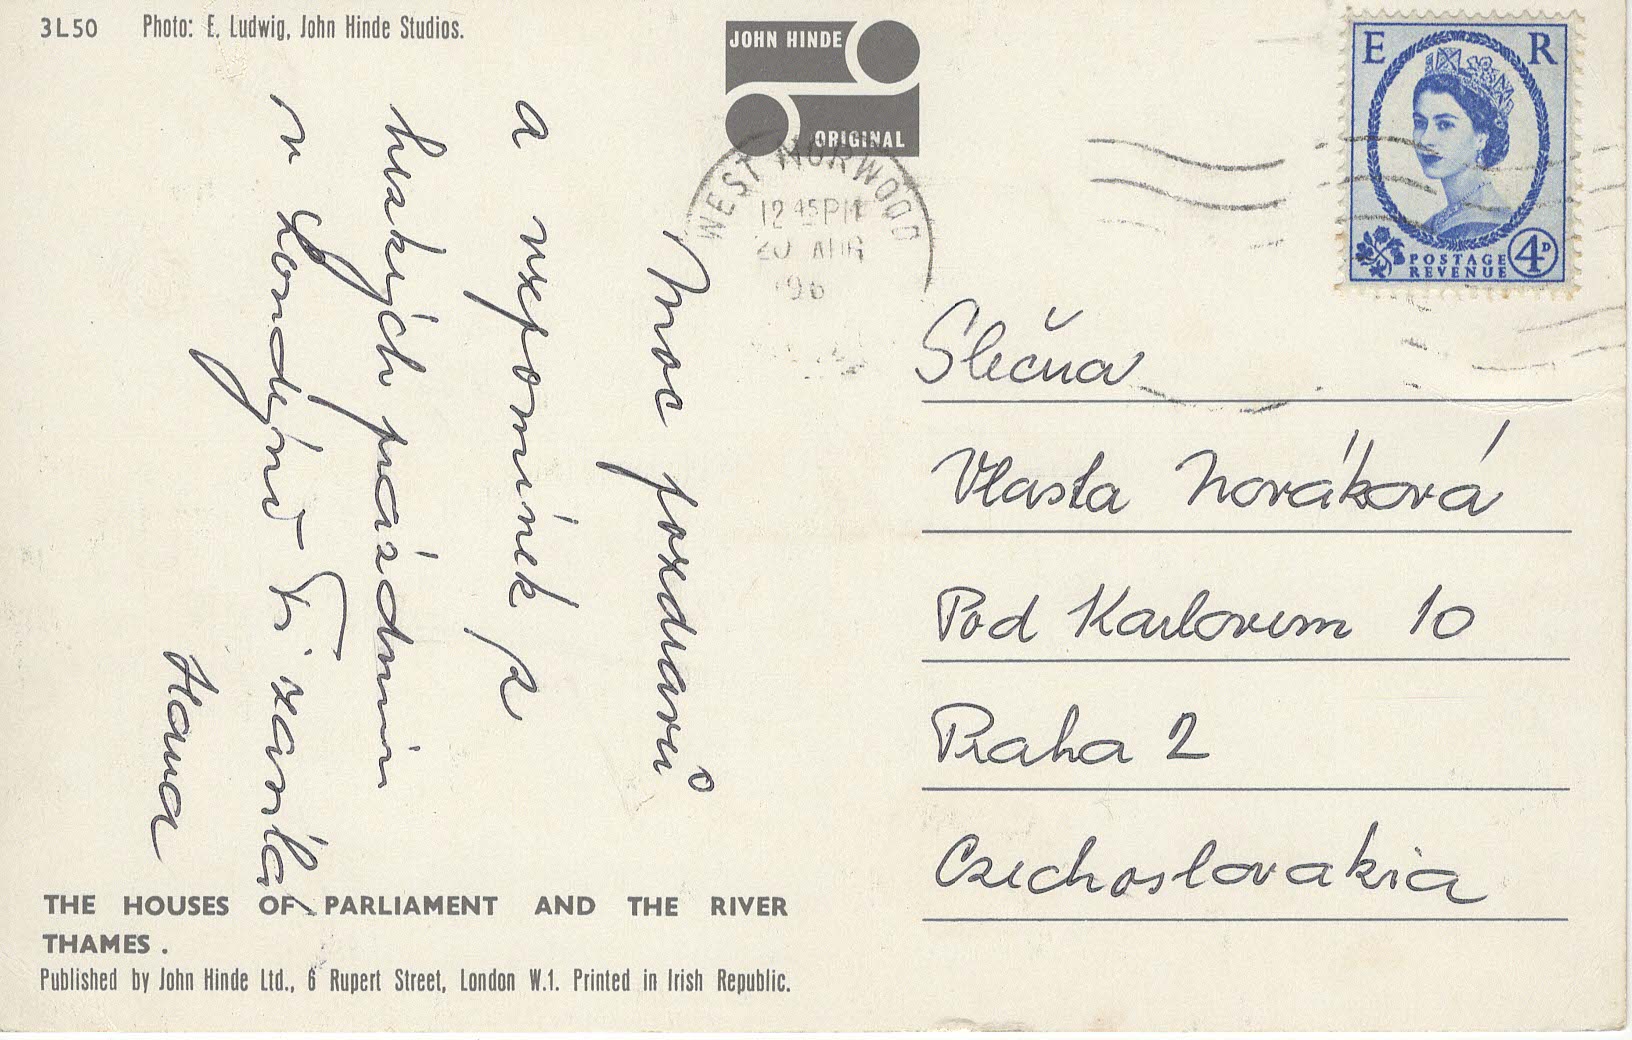 3L50 Photo: E. Ludwig, John Hinde Studios.
JOHN HINDE
ORIGINAL
WEST NORWOOD
12 45 PM
20
E R
POSTAGE
REVENUE
4D
Moc pozdravů
a vzpomínek z
hezkých prázdnin
v Londýně Ti zasílá
Hana
Slečna
Vlasta Nováková
Pod Karlovem 10
Praha 2
Czechoslovakia
THE HOUSES OF PARLIAMENT AND THE RIVER
THAMES.
Published by John Hinde Ltd., 6 Rupert Street, London W.1. Printed in Irish Republic.